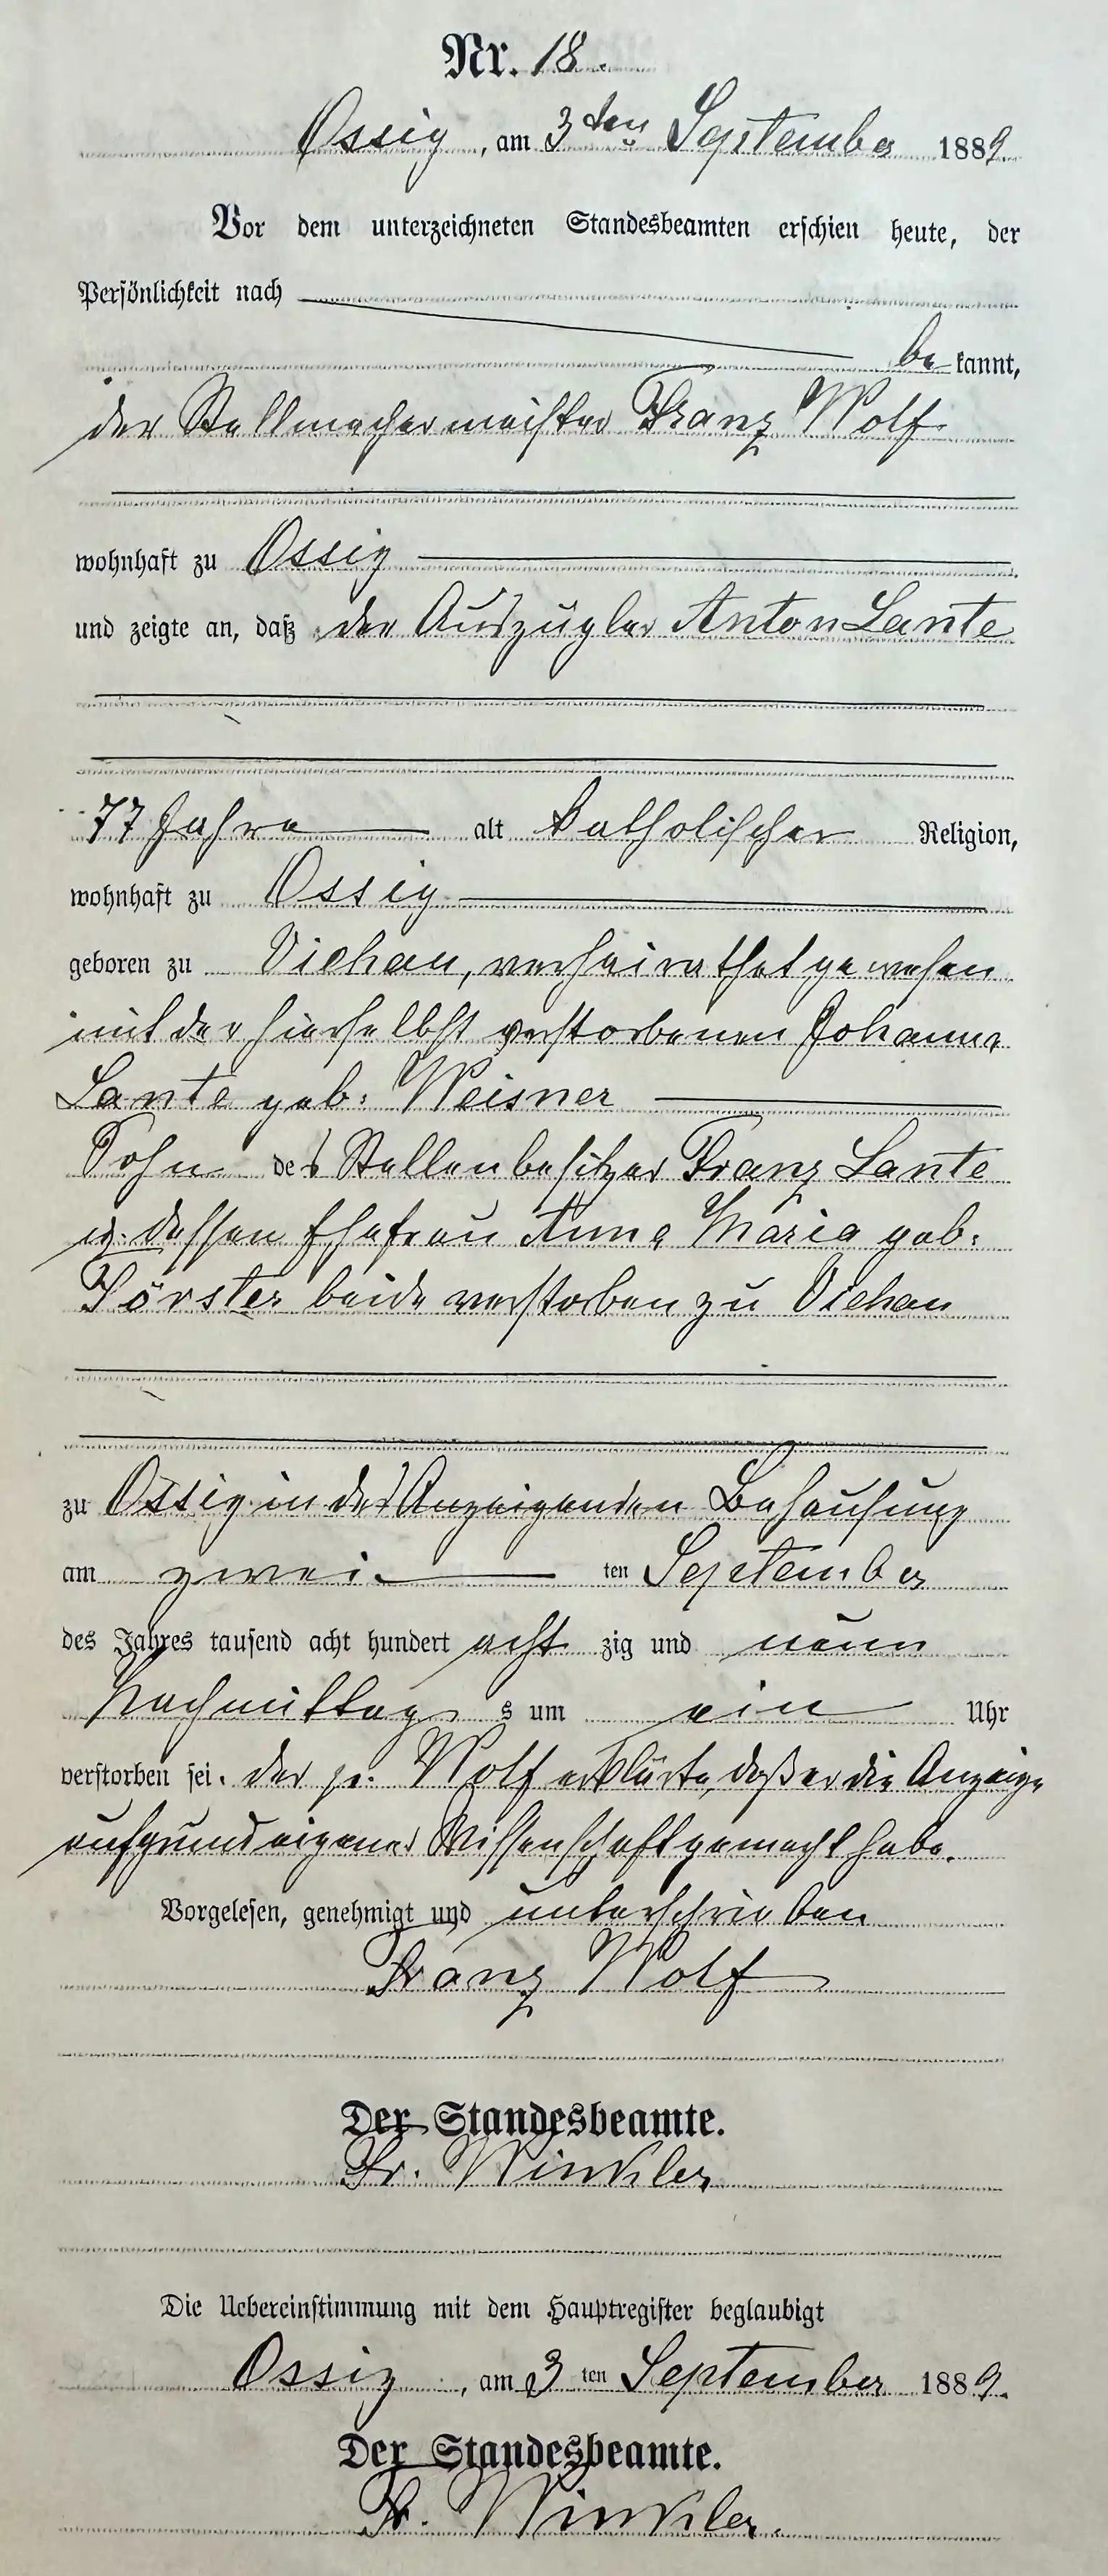 Nr. 18.
Ossig, am 3ten September 1889.
Vor dem unterzeichneten Standesbeamten erschien heute, der
Persönlichkeit nach
bekannt,
der Stellmachermeister Franz Wolf
wohnhaft zu Ossig
und zeigte an, daß der Auszügler Anton Lante
77 Jahre alt katholischer Religion,
wohnhaft zu Ossig
geboren zu Viehau, verheirathet gewesen
mit der hierselbst verstorbenen Johanne
Lante geb. Weisner
Sohn des Stellenbesitzer Franz Lante
u. dessen Ehefrau Anna Maria geb.
Förster beide verstorben zu Viehau
zu Ossig in des Anzeigenden Behausung
am zwei ten September
des Jahres tausend acht hundert acht zig und neun
Nachmittag s um ein Uhr
verstorben sei. der p. Wolf erklärte, daß er die Anzeige
aufgrund eigener Wissenschaft gemacht habe.
Vorgelesen, genehmigt und unterschrieben
Franz Wolf
Der Standesbeamte.
Fr. Winkler
Die Uebereinstimmung mit dem Hauptregister beglaubigt
Ossig, am 3 ten September 1889.
Der Standesbeamte.
Fr. Winkler.